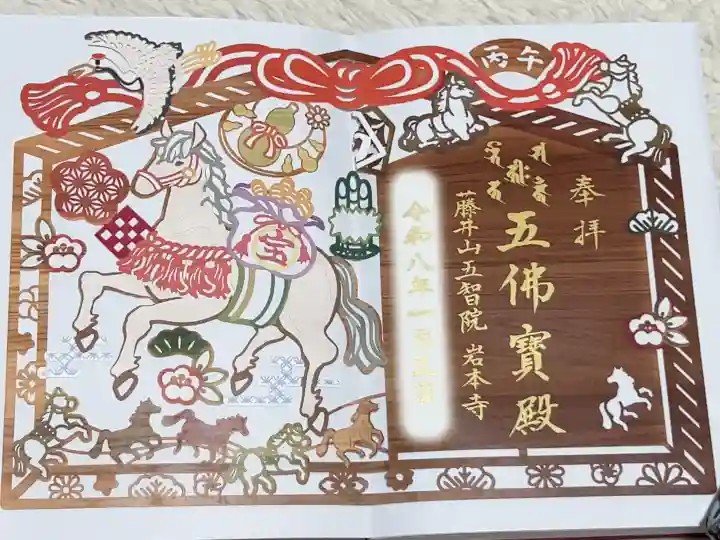 丙午
奉拝
五佛寳殿
藤井山五智院 岩本寺
令和八年一月
宝